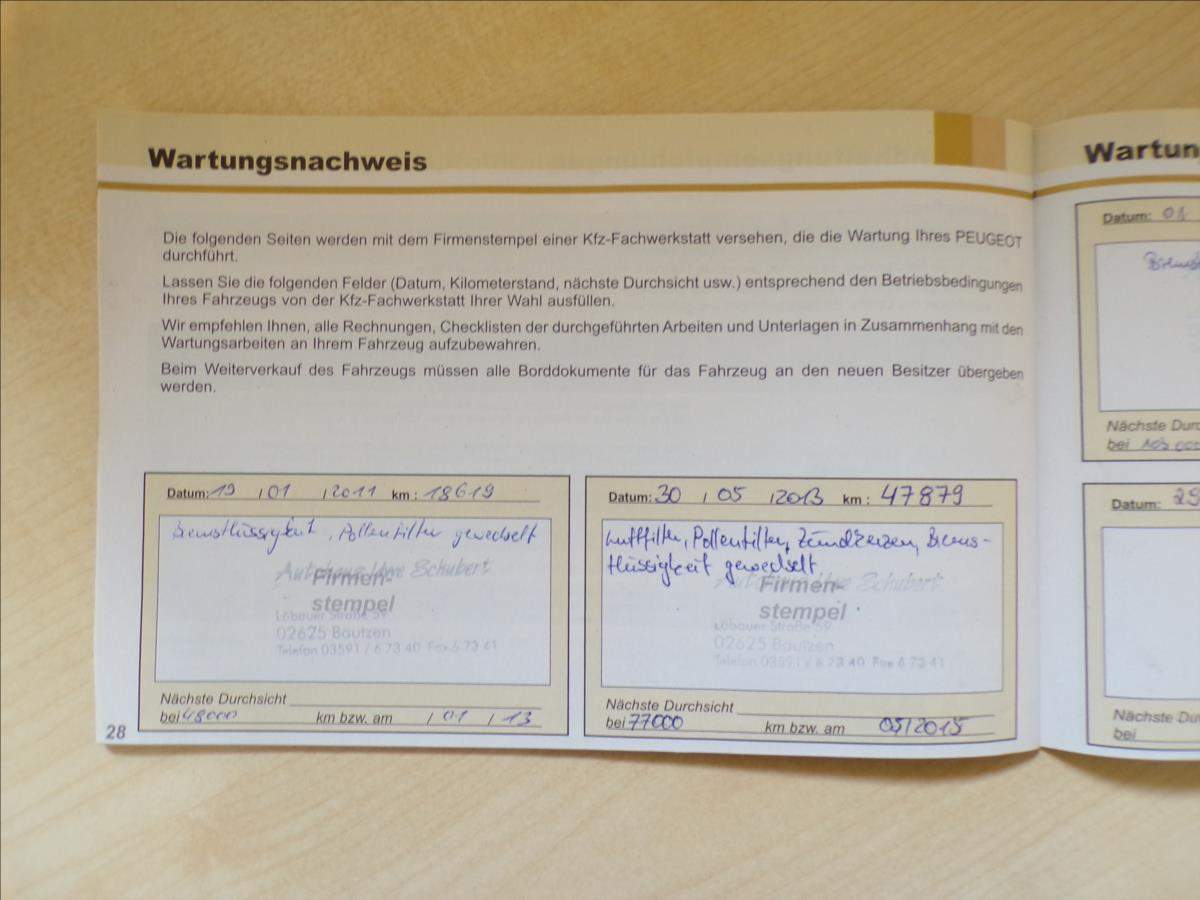 Wartungsnachweis
Die folgenden Seiten werden mit dem Firmenstempel einer Kfz-Fachwerkstatt versehen, die die Wartung Ihres PEUGEOT
durchführt.
Lassen Sie die folgenden Felder (Datum, Kilometerstand, nächste Durchsicht usw.) entsprechend den Betriebsbedingungen
Ihres Fahrzeugs von der Kfz-Fachwerkstatt Ihrer Wahl ausfüllen.
Wir empfehlen Ihnen, alle Rechnungen, Checklisten der durchgeführten Arbeiten und Unterlagen in Zusammenhang mit den
Wartungsarbeiten an Ihrem Fahrzeug aufzubewahren.
Beim Weiterverkauf des Fahrzeugs müssen alle Borddokumente für das Fahrzeug an den neuen Besitzer übergeben
werden.
Datum: 19 / 01 / 2011 km : 18619
Bremsflüssigkeit, Pollenfilter gewechselt
Autohaus Uwe Schubert
Firmen-
stempel
Löbauer Straße 59
02625 Bautzen
Telefon 03591 / 6 73 40 Fax 6 73 41
Nächste Durchsicht
bei 48000 km bzw. am / 01 / 13
28
Datum: 30 / 05 / 2013 km : 47879
Luftfilter, Pollenfilter, Zündkerzen, Brems-
flüssigkeit gewechselt
Autohaus Uwe Schubert
Firmen-
stempel
Löbauer Straße 59
02625 Bautzen
Telefon 03591 / 6 73 40 Fax 6 73 41
Nächste Durchsicht
bei 77000 km bzw. am 05/2015
Wartun
Datum: 01
Nächste Durc
bei
Datum: 29
Nächste Du
bei